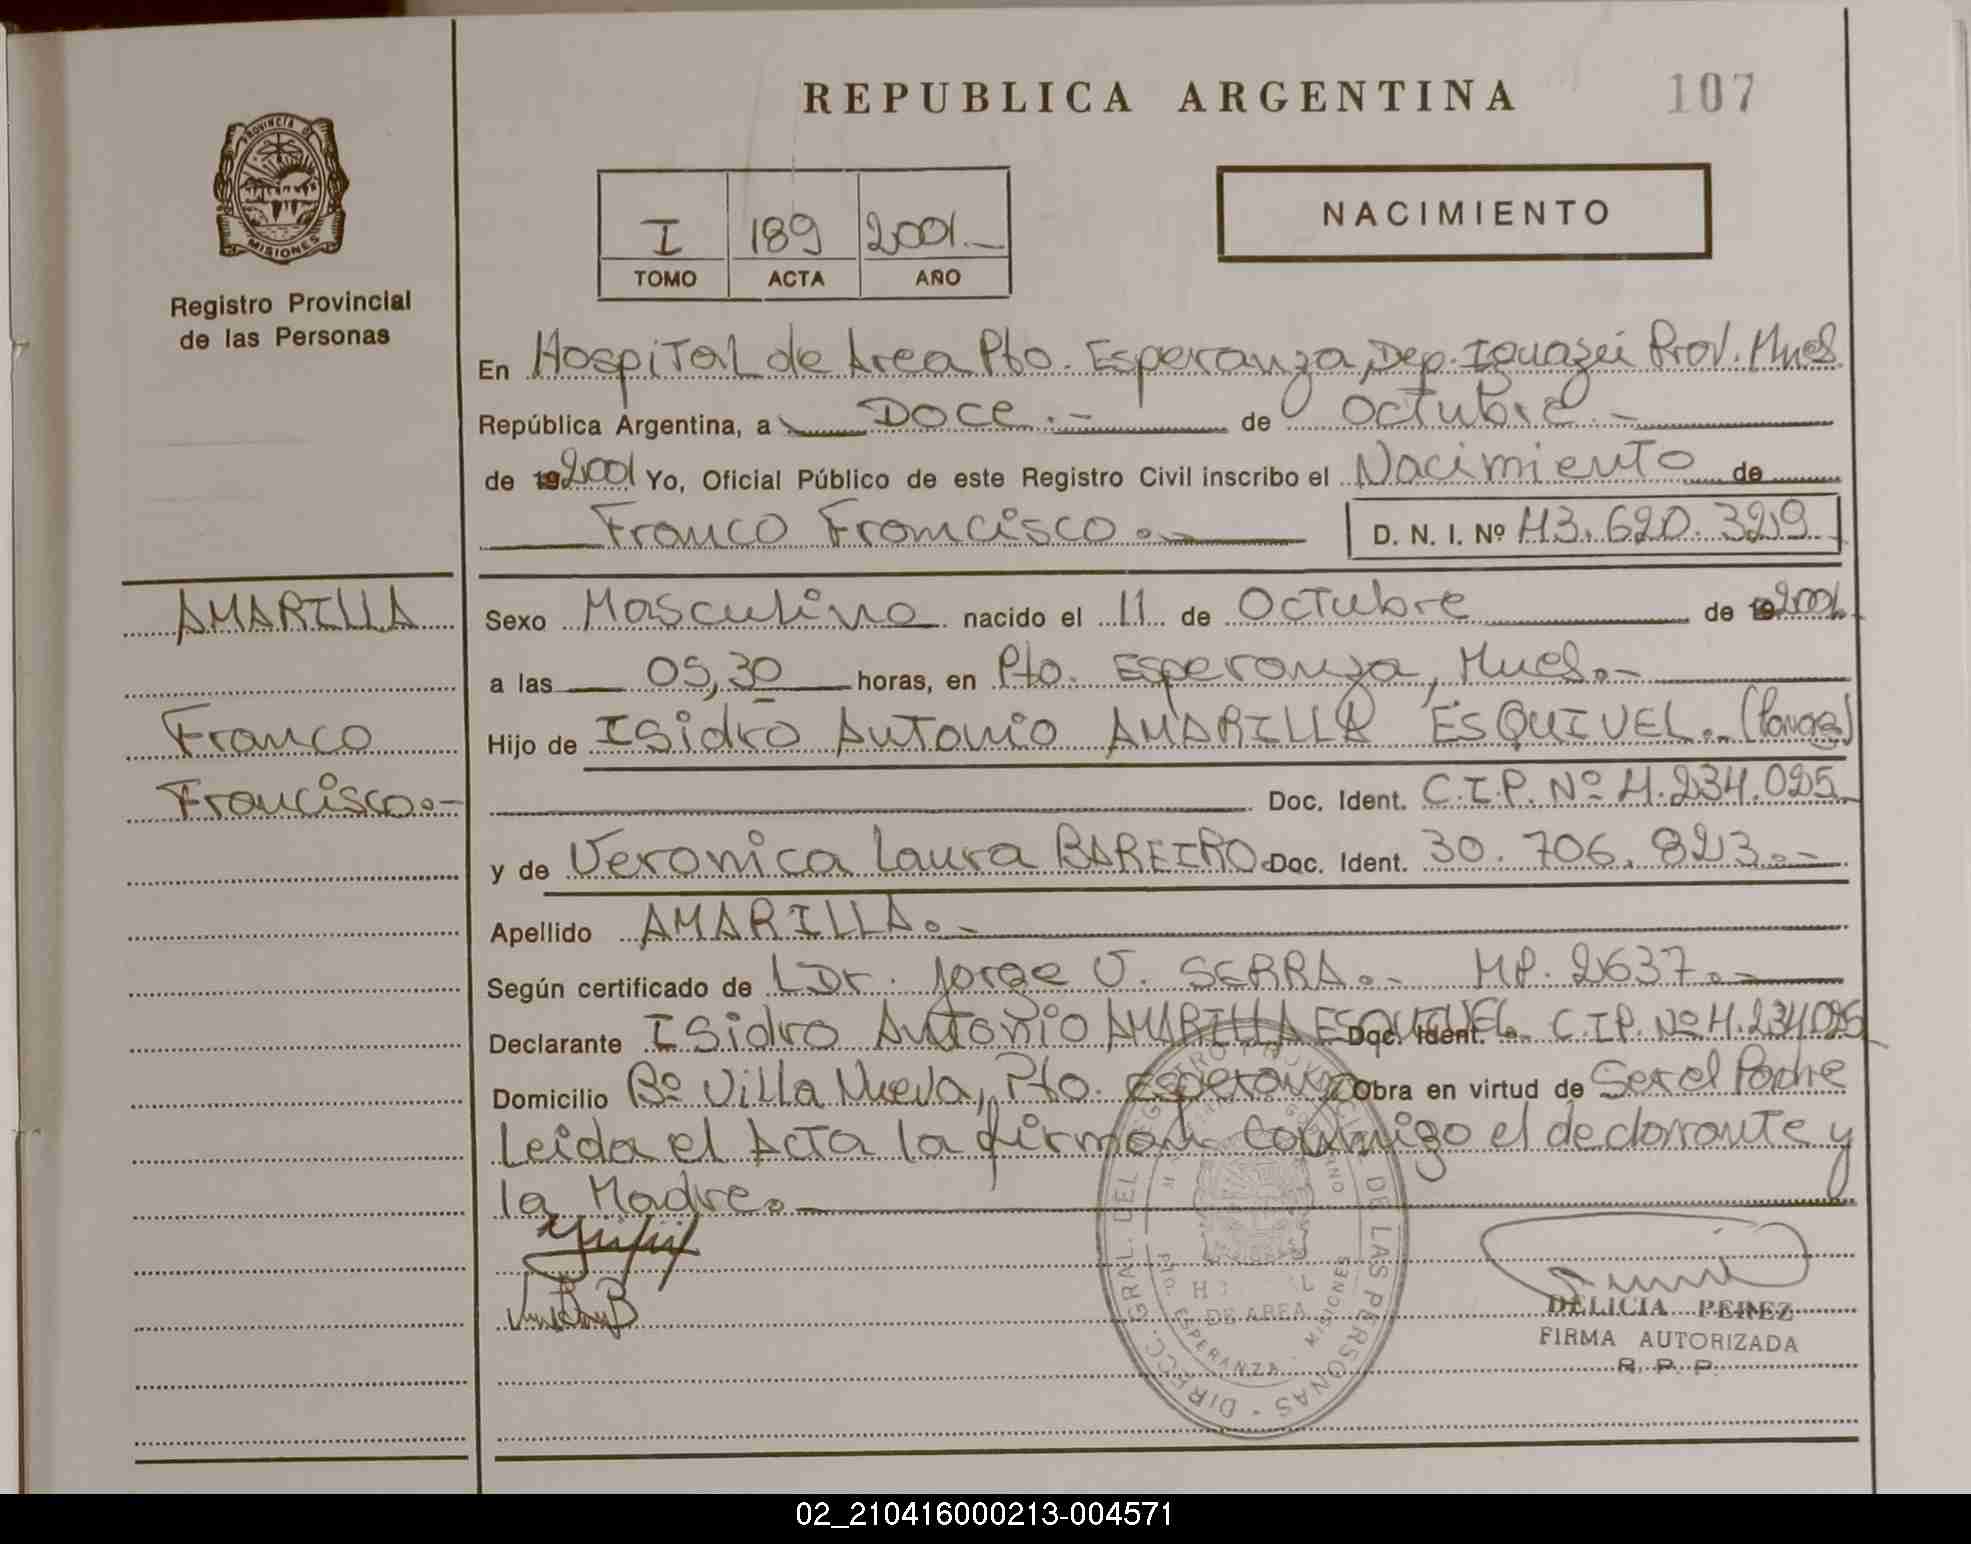 REPUBLICA ARGENTINA
107
PROVINCIA DE
MISIONES
Registro Provincial
de las Personas
I 189 2001.-
TOMO ACTA AÑO
NACIMIENTO
En Hospital de Area Pto. Esperanza, Dep. Iguazú Prov. Mnes.
República Argentina, a Doce.- de Octubre.-
de 19 2001 Yo, Oficial Público de este Registro Civil inscribo el Nacimiento de
Franco Francisco.- D. N. I. Nº 43.620.329
AMARILLA
Franco
Francisco.-
Sexo Masculino nacido el 11 de Octubre de 19 2001.
a las 05,30 horas, en Pto. Esperanza, Mnes.-
Hijo de Isidro Antonio AMARILLA ESQUIVEL.-
Doc. Ident. C.I.P. Nº 4.234.025
y de Veronica Laura BAREIRO. Doc. Ident. 30.706.823.-
Apellido AMARILLA.-
Según certificado de Dr. Jorge U. SERRA.- MP. 2637.-
Declarante Isidro Antonio AMARILLA ESQUIVEL Doc. Ident. C.I.P. Nº 4.234.025
Domicilio Bº Villa Nueva, Pto. Esperanza Obra en virtud de Ser el Padre
Leida el Acta la firman conmigo el declarante y
la Madre.
DIRECC. GRAL. DEL REGISTRO PROVINCIAL DE LAS PERSONAS
DE AREA
ESPERANZA - MISIONES
DELICIA PEREZ
FIRMA AUTORIZADA
R. P. P.
02_210416000213-004571